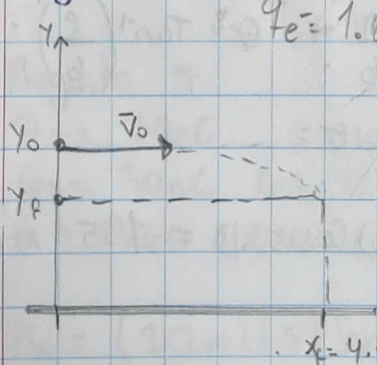 q_e⁻ = 1.
Y
Y₀
V̄₀
Y_f
x_f = 4.